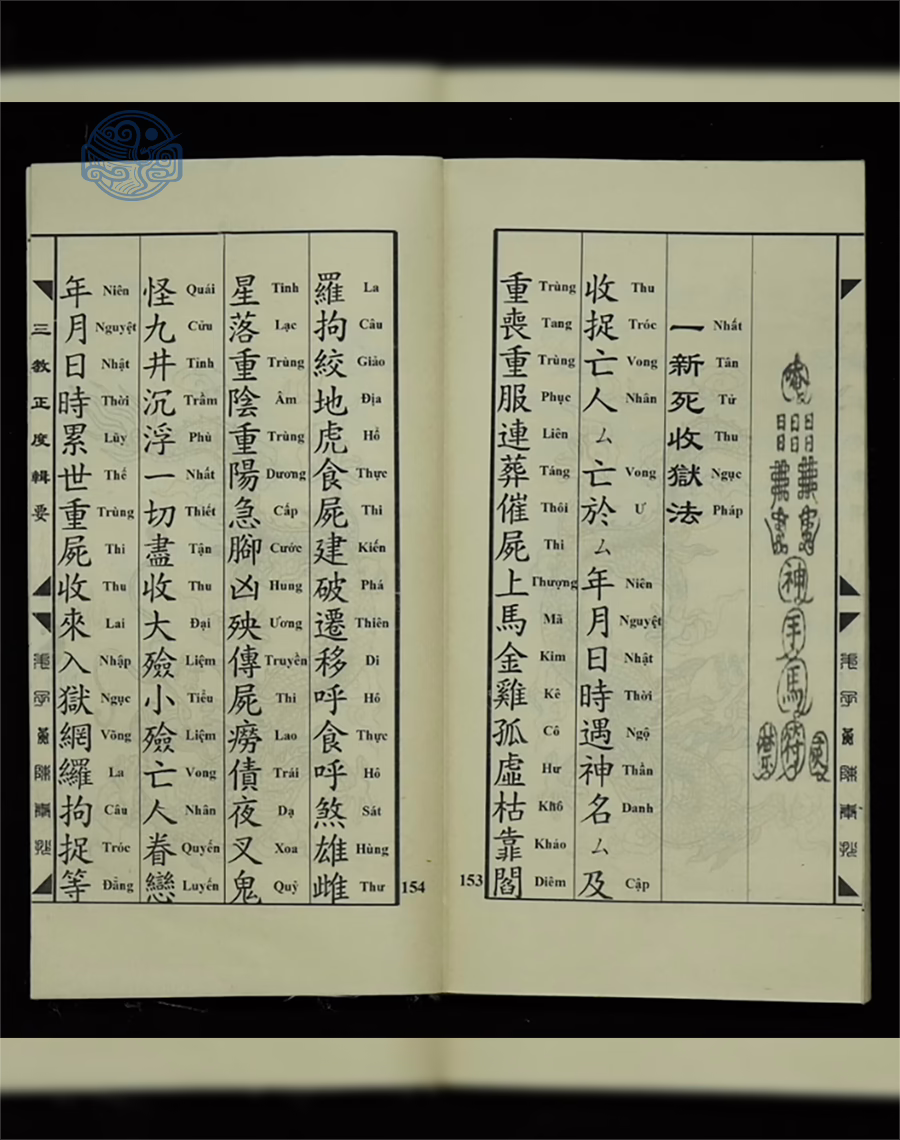 一新死收獄法
Nhất Tân Tử Thu Ngục Pháp
收捉亡人ㄙ亡於ㄙ年月日時遇神名ㄙ及
Thu Tróc Vong Nhân Vong Ư Niên Nguyệt Nhật Thời Ngộ Thần Danh Cập
重喪重服連葬催屍上馬金雞孤虛枯靠閻
Trùng Tang Trùng Phục Liên Táng Thôi Thi Thượng Mã Kim Kê Cô Hư Khô Kháo Diêm
153
154
羅拘絞地虎食屍建破遷移呼食呼煞雄雌
La Câu Giảo Địa Hổ Thực Thi Kiến Phá Thiên Di Hô Thực Hô Sát Hùng Thư
星落重陰重陽急腳凶殃傳屍癆債夜叉鬼
Tinh Lạc Trùng Âm Trùng Dương Cấp Cước Hung Ương Truyền Thi Lao Trái Dạ Xoa Quỷ
怪九井沉浮一切盡收大殮小殮亡人眷戀
Quái Cửu Tỉnh Trầm Phù Nhất Thiết Tận Thu Đại Liệm Tiểu Liệm Vong Nhân Quyến Luyến
年月日時累世重屍收來入獄網羅拘捉等
Niên Nguyệt Nhật Thời Lũy Thế Trùng Thi Thu Lai Nhập Ngục Võng La Câu Tróc Đẳng
三教正度輯要